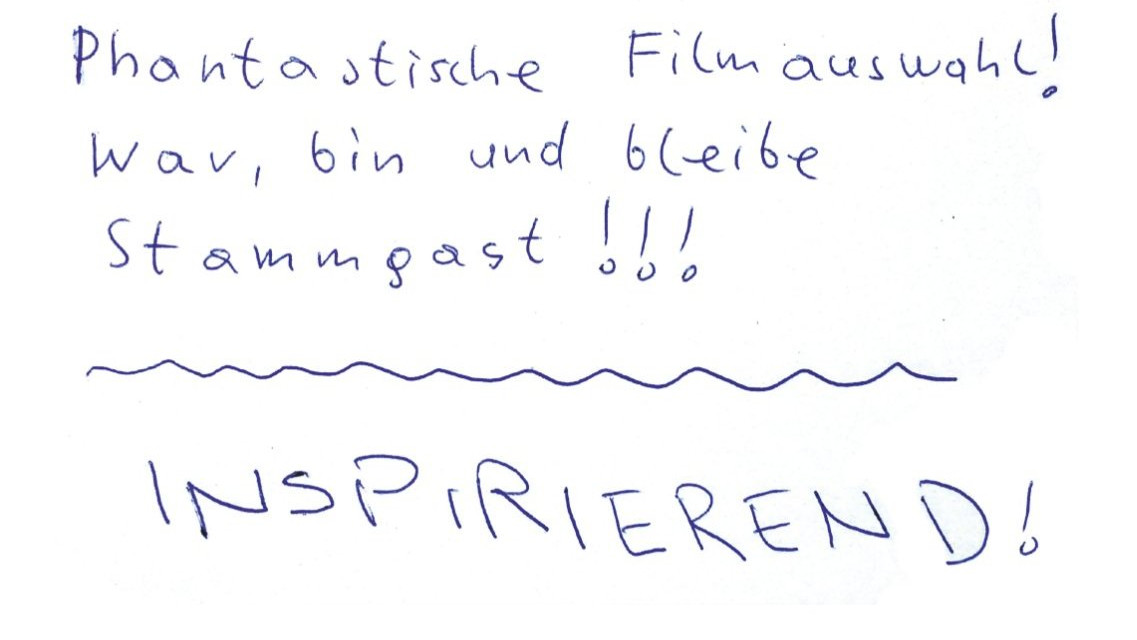 Phantastische Filmauswahl!
War, bin und bleibe
Stammgast !!!
INSPIRIEREND!